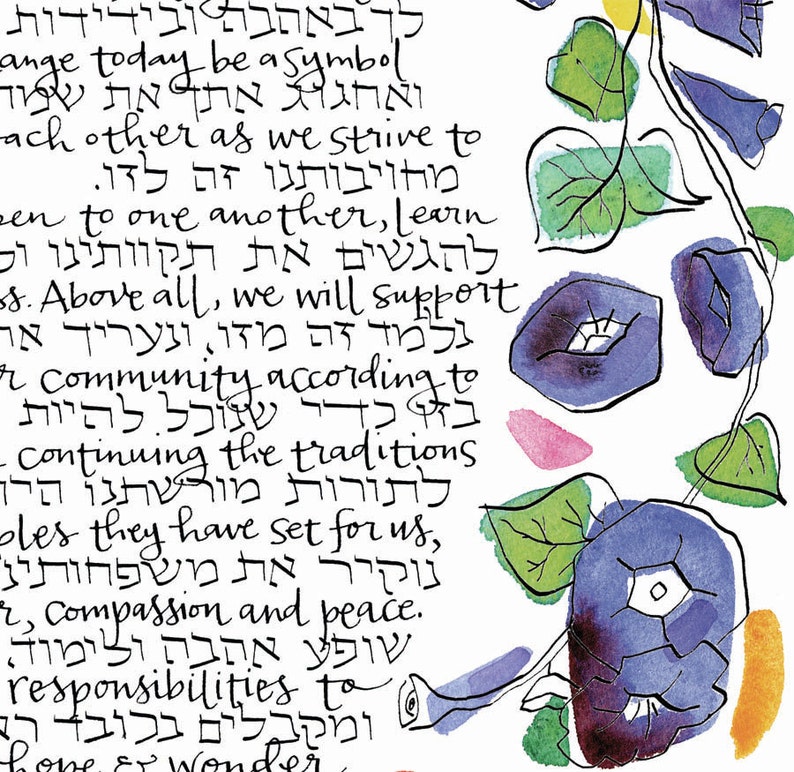 לך באהבה ובידידות
ange today be a symbol
ואחגוג אתך את שמח
each other as we strive to
מחויבותנו זה לזו.
pen to one another, learn
להגשים את תקוותינו ול
ss. Above all, we will support
נלמד זה מזו, ונעריך את
r community according to
בזו כדי שנוכל להיות
continuing the traditions
לתורות מורשתנו הרו
ples they have set for us,
נוקיר את משפחותינו
r, compassion and peace.
שופע אהבה ולימוד,
responsibilities to
ומקבלים בכובד רא
hope & wonder